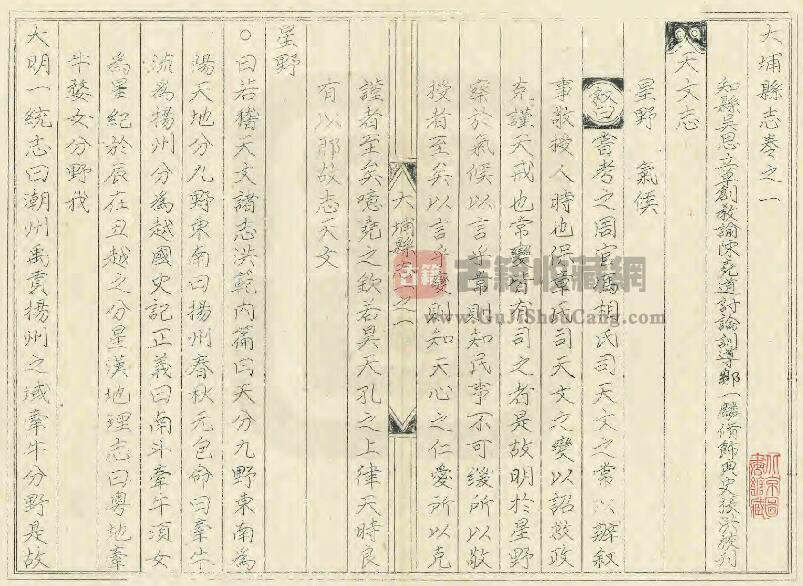 大埔縣志卷之一
知縣吳思立草創教諭陳堯道討論訓導鄒一麟脩飾典史張洪校刋
天文志
星野 氣候
敘曰嘗考之周官馮胡氏司天文之常以辦叙
事敬授人時也保章氏司天文之變以詔救政
克謹天戒也常變皆有司之者是故明於星野
察於氣候以言乎常則知民事不可緩所以敬
授者至矣以言乎變則知天心之仁愛所以克
謹者至矣噫堯之欽若昊天孔之上律天時良
有以耶故志天文
大埔縣志之一
星野
○曰若稽天文諸志洪範内篇曰天分九野東南為
陽天地分九野東南曰揚州春秋元包命曰牽牛
流為揚州分為越國史記正義曰南斗牽牛湏女
為星紀於辰在丑越之分星漢地理志曰粤地牽
牛婺女分野我
大明一統志曰潮州禹貢揚州之域牽牛分野是故
古籍
古籍收藏網
www.GuJiShouCang.com